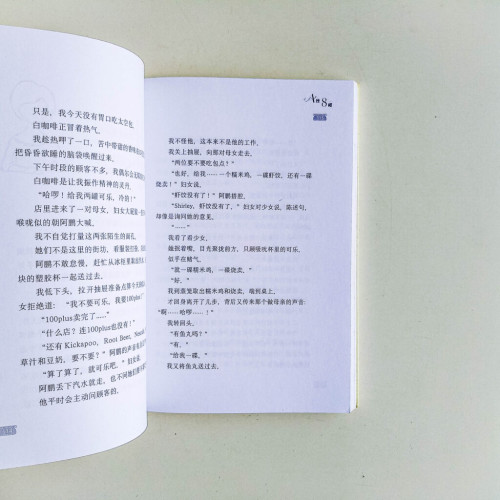 只是，我今天没有胃口吃太空包。
白咖啡正冒着热气。
我趁热呷了一口，苦中带甜的
把昏昏欲睡的脑袋唤醒过来。
下午时段的顾客不多，我偶尔会
白咖啡是让我振作精神的灵丹。
“哈啰！给我两罐可乐，冷的！”
店里进来了一对母女。妇女大嗓
喉咙似的朝阿鹏大喊。
我不自觉打量这两张陌生的面孔。
她们不是这里的街坊，看服装
阿鹏不敢怠慢，赶忙从冰柜里
块的塑胶杯一起送过去。
我低下头，拉开抽屉准备点算今天
女拒绝道：“我不要可乐，我要100plus！”
“100plus卖完了……”
“什么店？连100plus也没有！”
“还有 Kickapoo，Root Beer，
草汁和豆奶，要不要？”阿鹏的声音
“算了算了，就可乐吧。”妇女说。
阿鹏丢下汽水就走，也不问她们
他平时会主动问顾客的。
我不怪他，这本来不是他的工作。
我关上抽屉，向那对母女走去。
“两位要不要吃包点？”
“也好，给我……一个糯米鸡，一碟虾饺，还有一碟
烧卖！”妇女说。
“虾饺没有了！”阿鹏搭腔。
“Shirley，虾饺没有了。”妇女对少女说，陈述句，
却像是询问她的意见。
“……”
我看了看少女。
她抿着嘴，目光聚拢前方，只顾吸吮杯里的可乐，
似乎在赌气。
“就一碟糯米鸡，一碟烧卖。”
“好。”
我到蒸笼取出糯米鸡和烧卖，端到桌上。
才回身离开了几步，背后又传来那个做母亲的声音：
“啊……哈啰……！”
我转回头。
“有鱼丸吗？”
“有。”
“给我一碟。”
我又将鱼丸送过去。